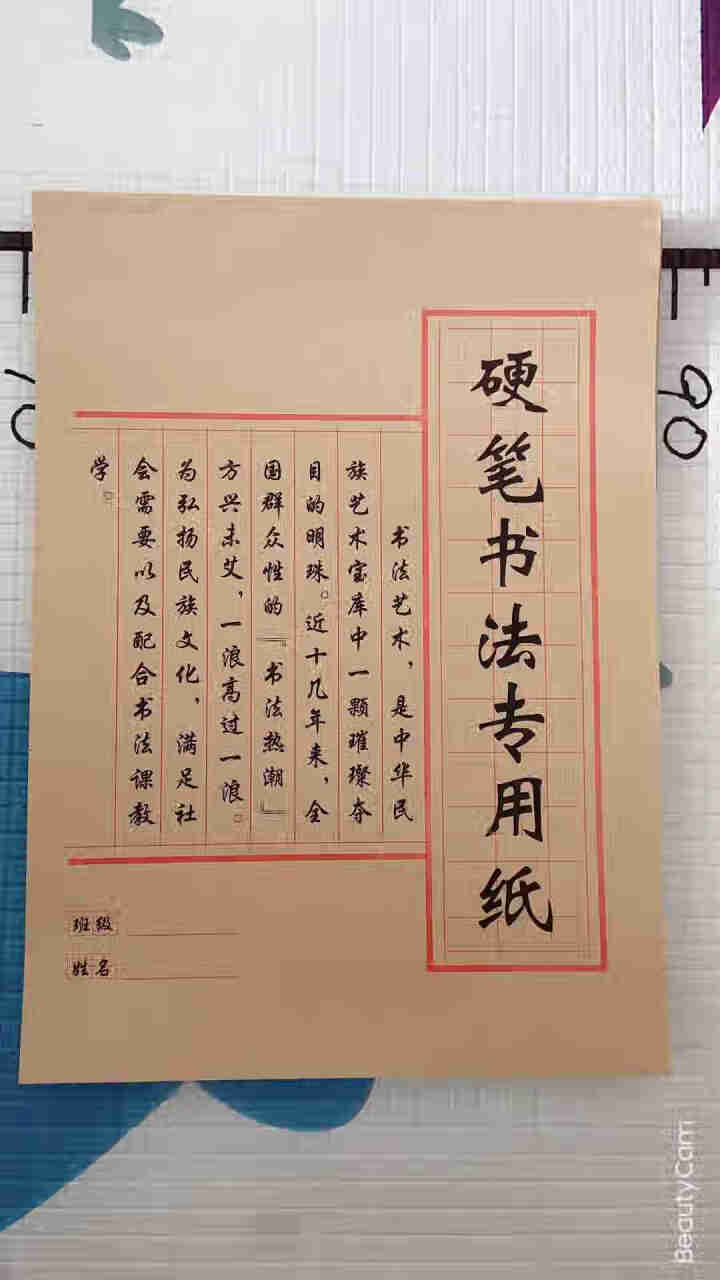 硬笔书法专用纸
书法艺术，是中华民
族艺术宝库中一颗璀璨夺
目的明珠。近十几年来，全
国群众性的『书法热潮』
方兴未艾，一浪高过一浪。
为弘扬民族文化，满足社
会需要以及配合书法课教
学。
班级
姓名
90
BeautyCam